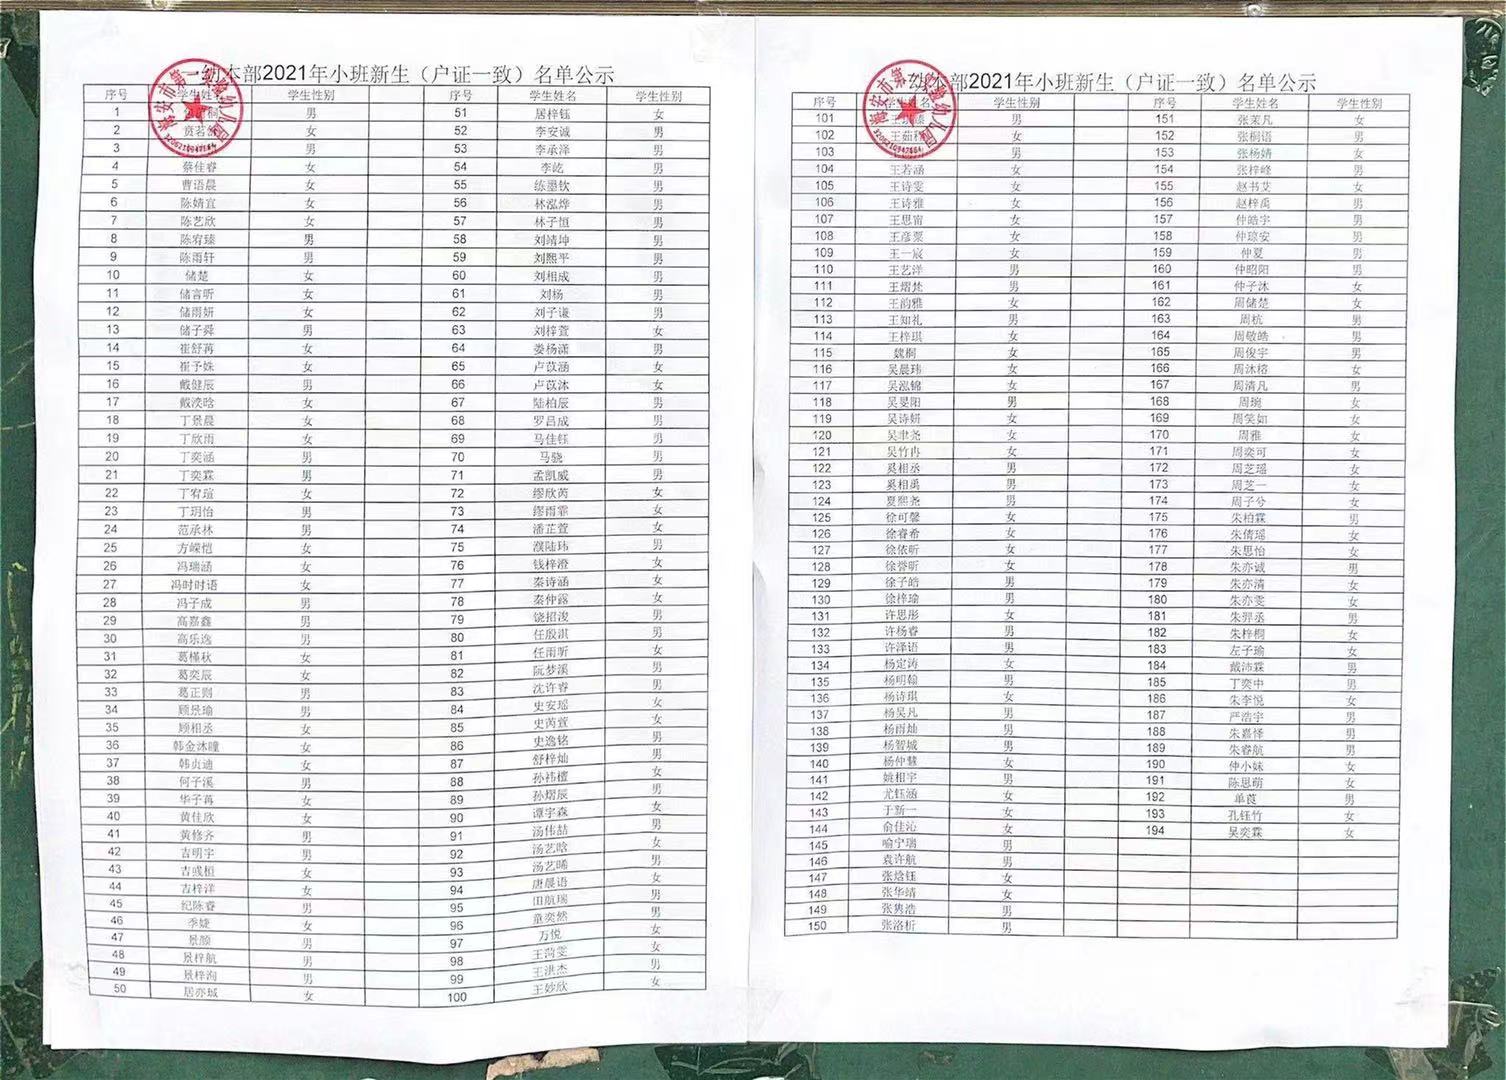 一幼本部2021年小班新生（户证一致）名单公示
序号 学生姓名 学生性别 序号 学生姓名 学生性别
1 桐 男 51 居梓钰 女
2 贲若 女 52 李安诚 男
3 男 53 李承泽 男
4 蔡佳睿 女 54 李屹 男
5 曹语晨 女 55 练墨钦 男
6 陈婧宜 女 56 林泓烨 男
7 陈艺欣 女 57 林子恒 男
8 陈宥臻 男 58 刘靖坤 男
9 陈雨轩 男 59 刘熙平 男
10 储楚 女 60 刘相成 男
11 储言听 女 61 刘杨 男
12 储雨妍 女 62 刘子谦 男
13 储子舜 男 63 刘梓萱 女
14 崔舒苒 女 64 娄杨潇 男
15 崔予姝 女 65 卢苡涵 女
16 戴健辰 男 66 卢苡沐 女
17 戴湙晗 女 67 陆柏辰 男
18 丁景晨 女 68 罗吕成 男
19 丁欣雨 女 69 马佳钰 男
20 丁奕涵 男 70 马骁 男
21 丁奕霖 男 71 孟凯威 男
22 丁宥瑄 女 72 缪欣芮 女
23 丁玥怡 男 73 缪雨霏 女
24 范承林 男 74 潘芷萱 女
25 方嵘恺 女 75 濮陆玮 男
26 冯瑞涵 女 76 钱梓澄 女
27 冯时时语 女 77 秦诗涵 女
28 冯子成 男 78 秦仲露 女
29 高嘉鑫 男 79 饶招浚 男
30 高乐逸 男 80 任殷淇 男
31 葛槿秋 女 81 任雨昕 女
32 葛奕辰 女 82 阮梦溪 男
33 葛正则 男 83 沈许睿 男
34 顾景瑜 男 84 史安瑶 女
35 顾相丞 女 85 史芮萱 女
36 韩金沐曈 女 86 史逸铭 男
37 韩贞迪 女 87 舒梓灿 男
38 何子溪 男 88 孙祎檀 女
39 华子苒 女 89 孙熠辰 男
40 黄佳欣 女 90 谭宇森 女
41 黄修齐 男 91 汤伟喆 男
42 吉明宇 男 92 汤艺晗 女
43 吉彧桓 女 93 汤艺晞 男
44 吉梓洋 女 94 唐晨语 女
45 纪陈睿 男 95 田航瑞 男
46 季婕 女 96 童奕然 男
47 景颐 男 97 万悦 女
48 景梓航 男 98 王菏雯 女
49 景梓洵 男 99 王洪杰 男
50 居亦城 女 100 王妙欣 女
一幼本部2021年小班新生（户证一致）名单公示
序号 学生姓名 学生性别 序号 学生姓名 学生性别
101 王 臻 男 151 张茉凡 女
102 王茹 女 152 张桐语 男
103 男 153 张杨婧 女
104 王若涵 女 154 张梓峰 男
105 王诗雯 女 155 赵书艾 女
106 王诗雅 女 156 赵梓禹 男
107 王思甯 女 157 仲皓宇 男
108 王彦粟 女 158 仲琼安 男
109 王一宸 女 159 仲夏 男
110 王艺洋 男 160 仲昭阳 男
111 王熠梵 男 161 仲子沐 女
112 王韵雅 女 162 周储楚 女
113 王知礼 男 163 周杭 男
114 王梓琪 女 164 周敬皓 男
115 魏桐 女 165 周俊宇 男
116 吴晨玮 女 166 周沐榕 女
117 吴泓锦 女 167 周清凡 男
118 吴旻阳 男 168 周琬 女
119 吴诗妍 女 169 周笑如 女
120 吴聿尧 女 170 周雅 女
121 吴竹冉 女 171 周奕可 女
122 奚相丞 男 172 周芝瑶 女
123 奚相禹 男 173 周芝一 女
124 夏熙尧 男 174 周子兮 女
125 徐可馨 女 175 朱柏霖 男
126 徐睿希 女 176 朱倩瑶 女
127 徐依昕 女 177 朱思怡 女
128 徐誉昕 女 178 朱亦诚 男
129 徐子皓 男 179 朱亦清 女
130 徐梓瑜 男 180 朱亦雯 女
131 许思彤 女 181 朱羿丞 男
132 许杨睿 男 182 朱梓桐 女
133 许泽语 男 183 左子瑜 女
134 杨定涛 女 184 戴沛霖 男
135 杨明翰 男 185 丁奕中 男
136 杨诗琪 女 186 朱李悦 女
137 杨昊凡 男 187 严浩宇 男
138 杨雨灿 男 188 朱嘉怿 男
139 杨智城 男 189 朱睿航 男
140 杨仲慧 女 190 仲小妹 女
141 姚相宇 男 191 陈思萌 女
142 尤钰涵 女 192 单莨 男
143 于新一 女 193 孔钰竹 女
144 俞佳沁 女 194 吴奕霖 女
145 喻宁瑞 男
146 袁许航 男
147 张焓钰 女
148 张华靖 女
149 张隽浩 男
150 张洛析 男